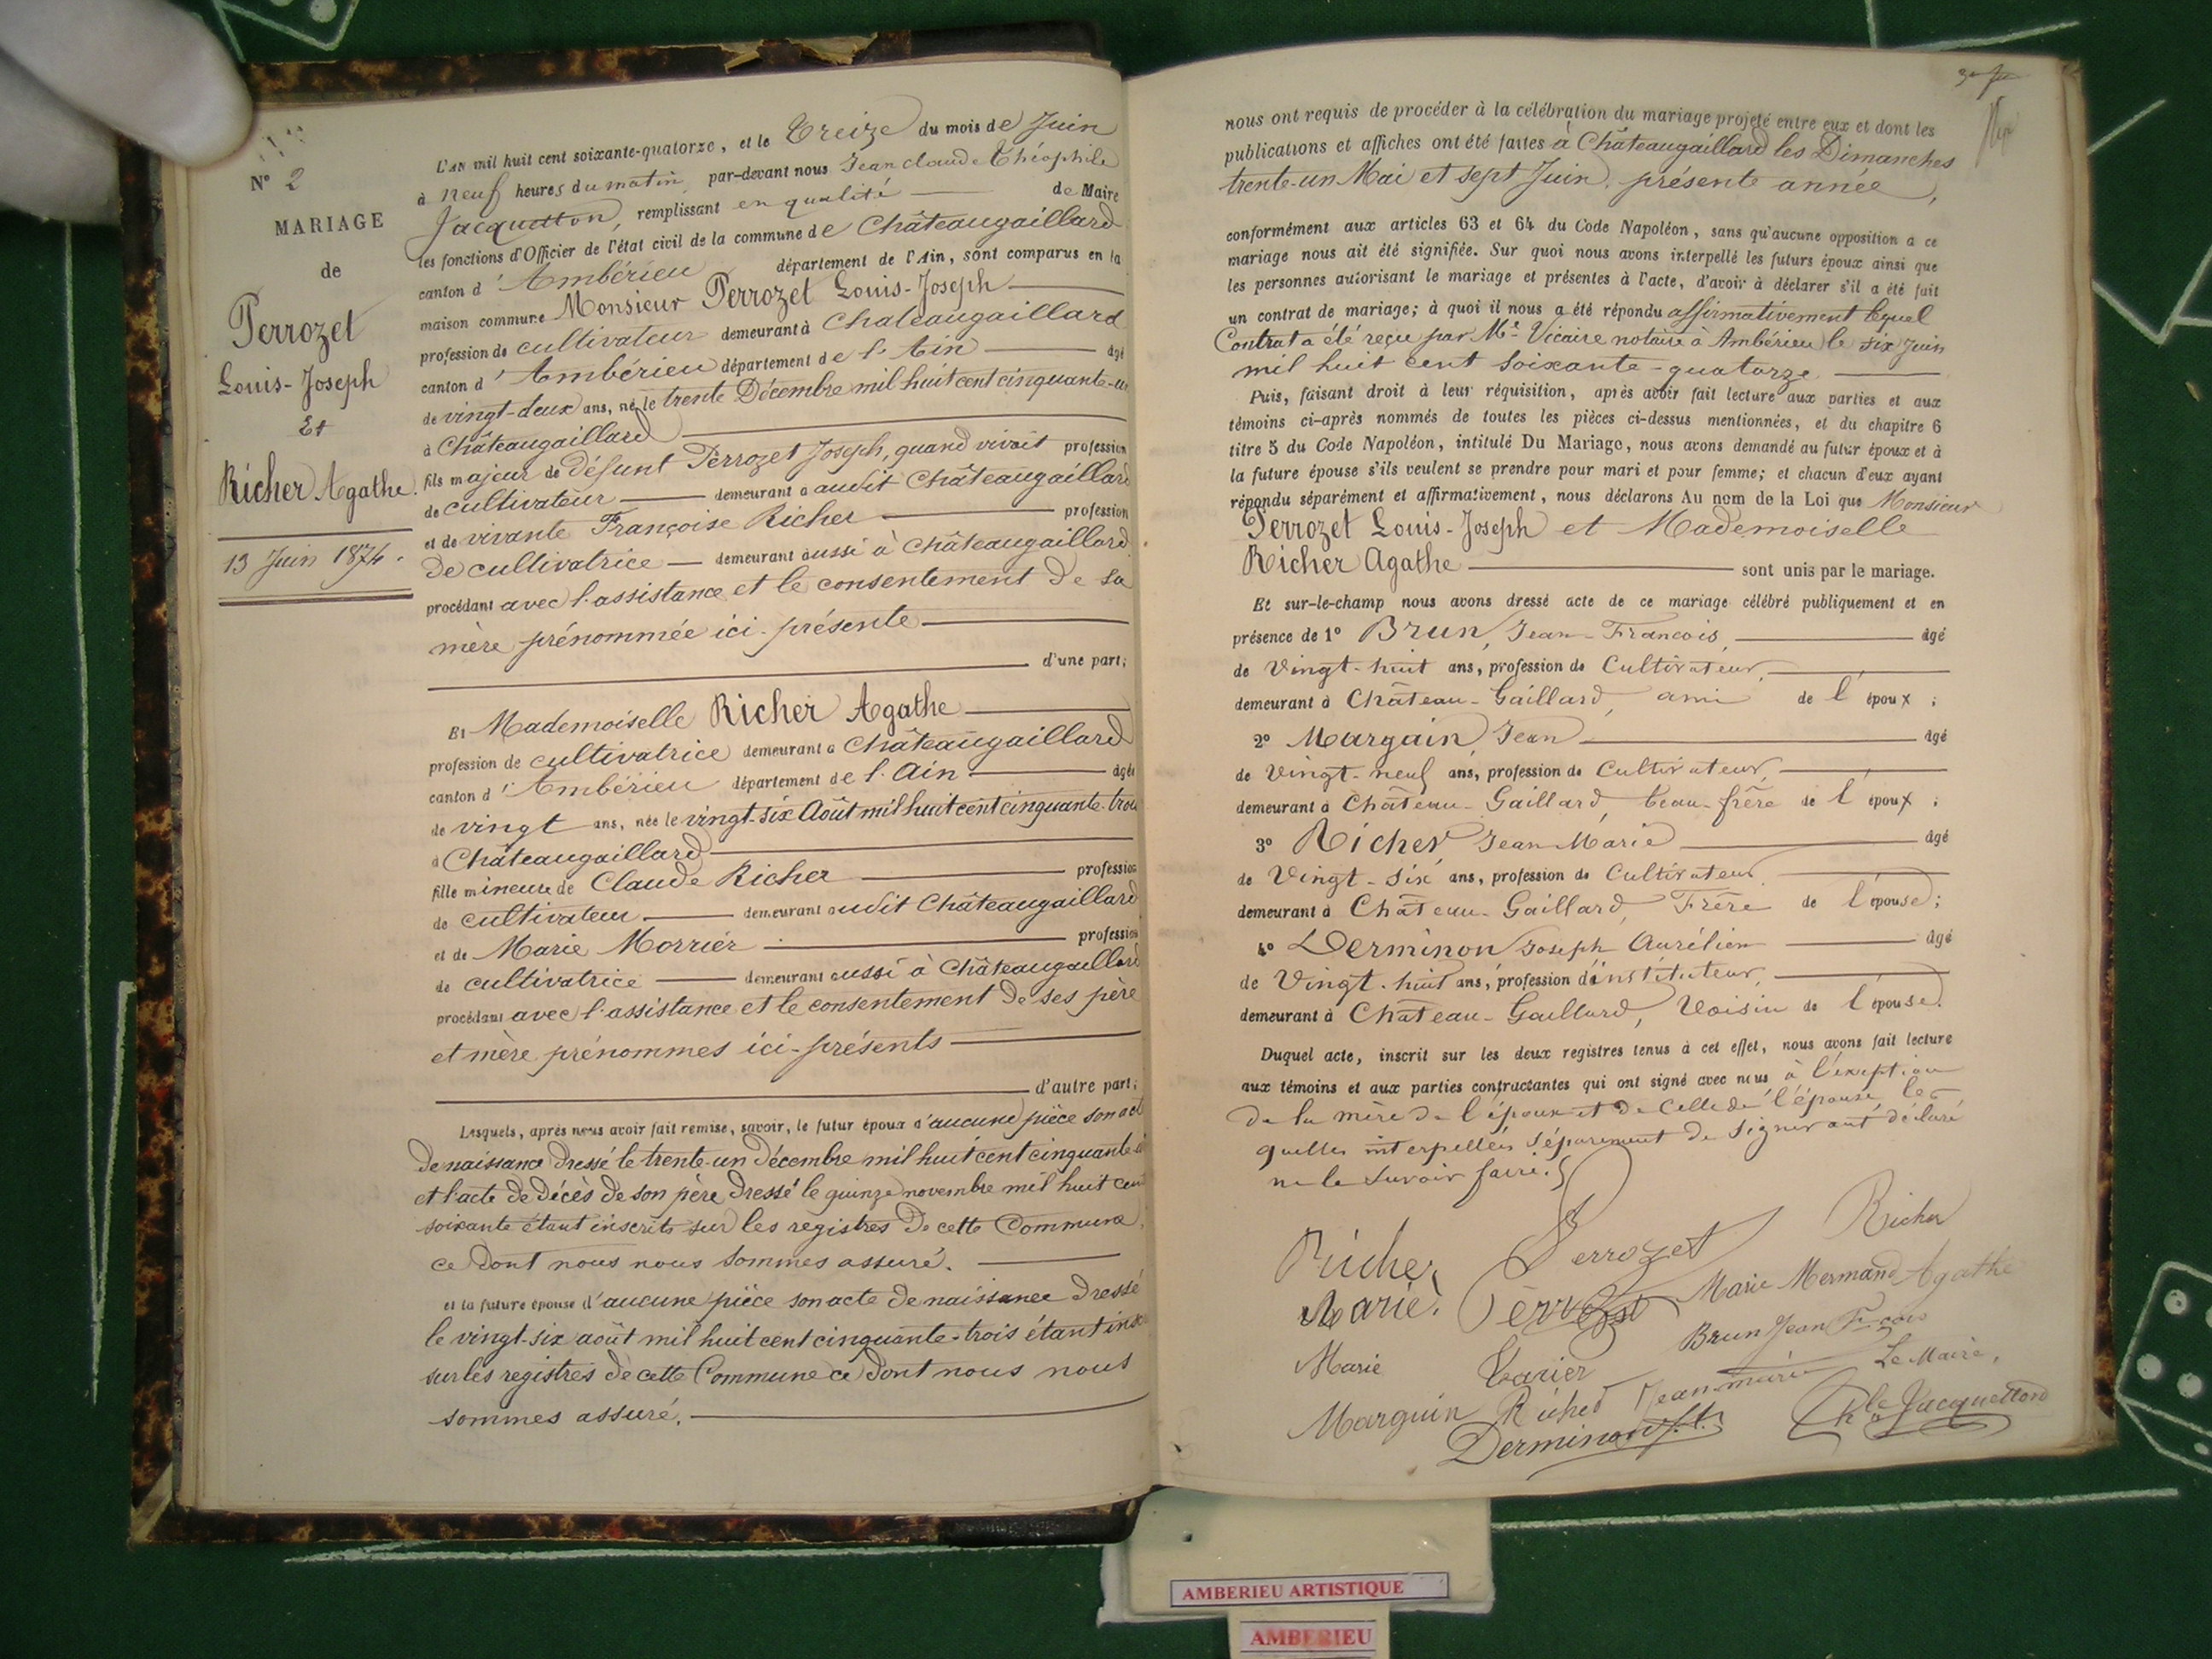 N° 2
MARIAGE
de
Perrozet
Louis-Joseph
Et
Richer Agathe.
13 Juin 1874.
L'an mil huit cent soixante-quatorze, et le Treize du mois de Juin
à neuf heures du matin, par-devant nous Jean claude Théophile
Jacquetton, remplissant en qualité de Maire
les fonctions d'Officier de l'état civil de la commune de Châteaugaillard
canton d'Ambérieu département de l'Ain, sont comparus en la
maison commune Monsieur Perrozet Louis-Joseph
profession de cultivateur demeurant à Chateaugaillard
canton d'Ambérieu département de l'Ain âgé
de vingt-deux ans, né le trente Décembre mil huit cent cinquante-un
à Châteaugaillard
fils majeur de défunt Perrozet Joseph, quand vivait profession
de cultivateur demeurant a audit Châteaugaillard
et de vivante Françoise Richer profession
De cultivatrice demeurant aussi à Châteaugaillard
procédant avec l'assistance et le consentement de sa
mère prénommée ici-présente
d'une part;
Et Mademoiselle Richer Agathe
profession de cultivatrice demeurant a Châteaugaillard
canton d'Ambérieu département de l'Ain âgée
de vingt ans, née le vingt-six Août mil huit cent cinquante-trois
à Châteaugaillard
fille mineure de Claude Richer profession
de cultivateur demeurant audit Châteaugaillard
et de Marie Morrier profession
de cultivatrice demeurant aussi à Châteaugaillard
procédant avec l'assistance et le consentement de ses père
et mère prénommés ici-présents
d'autre part;
Lesquels, après nous avoir fait remise, savoir, le futur époux d'aucune pièce son act
de naissance dressé le trente-un décembre mil huit cent cinquante
et l'acte de décès de son père dressé le quinze novembre mil huit cent
soixante étant inscrits sur les registres de cette Commune,
ce dont nous nous sommes assuré.
et la future épouse d'aucune pièce son acte de naissance dressé
le vingt-six août mil huit cent cinquante-trois étant insc
sur les registres de cette Commune ce dont nous nous
sommes assuré.
nous ont requis de procéder à la célébration du mariage projeté entre eux et dont les
publications et affiches ont été faites à Châteaugaillard les Dimanches
trente-un Mai et sept Juin, présente année,
conformément aux articles 63 et 64 du Code Napoléon, sans qu'aucune opposition a ce
mariage nous ait été signifiée. Sur quoi nous avons interpellé les futurs époux ainsi que
les personnes autorisant le mariage et présentes à l'acte, d'avoir à déclarer s'il a été fait
un contrat de mariage; à quoi il nous a été répondu affirmativement lequel
Contrat a été reçu par Me Vicaire notaire à Ambérieu le six juin
mil huit cent soixante-quatorze
Puis, faisant droit à leur réquisition, après avoir fait lecture aux parties et aux
témoins ci-après nommés de toutes les pièces ci-dessus mentionnées, et du chapitre 6
titre 5 du Code Napoléon, intitulé Du Mariage, nous avons demandé au futur époux et à
la future épouse s'ils veulent se prendre pour mari et pour femme; et chacun d'eux ayant
répondu séparément et affirmativement, nous déclarons Au nom de la Loi que Monsieur
Perrozet Louis-Joseph et Mademoiselle
Richer Agathe sont unis par le mariage.
Et sur-le-champ nous avons dressé acte de ce mariage célébré publiquement et en
présence de 1° Brun, Jean-Francois, âgé
de Vingt-huit ans, profession de Cultivateur,
demeurant à Château-Gaillard, ami de l'époux;
2° Margain, Jean âgé
de Vingt-neuf ans, profession de Cultivateur,
demeurant à Château-Gaillard, beau-frère de l'époux;
3° Richer Jean-Marie âgé
de Vingt-six ans, profession de Cultivateur
demeurant à Château-Gaillard, Frère de l'épouse;
4° Derminon Joseph Aurélien âgé
de Vingt-huit ans, profession d'instituteur,
demeurant à Château-Gaillard, Voisin de l'épouse.
Duquel acte, inscrit sur les deux registres tenus à cet effet, nous avons fait lecture
aux témoins et aux parties contractantes qui ont signé avec nous à l'exeption
de la mère de l'époux et de celle de l'épouse les
quelles interpellées séparement de signer ont déclaré
ne le savoir faire.
Richer Perrozet Richer
Marie. Perrozet Marie Mermand Agathe
Marie Tarier Brun Jean Fçois
Marguin Richer Jean-marie Le Maire,
Derminon J. Jacquetton
AMBERIEU ARTISTIQUE
AMBERIEU